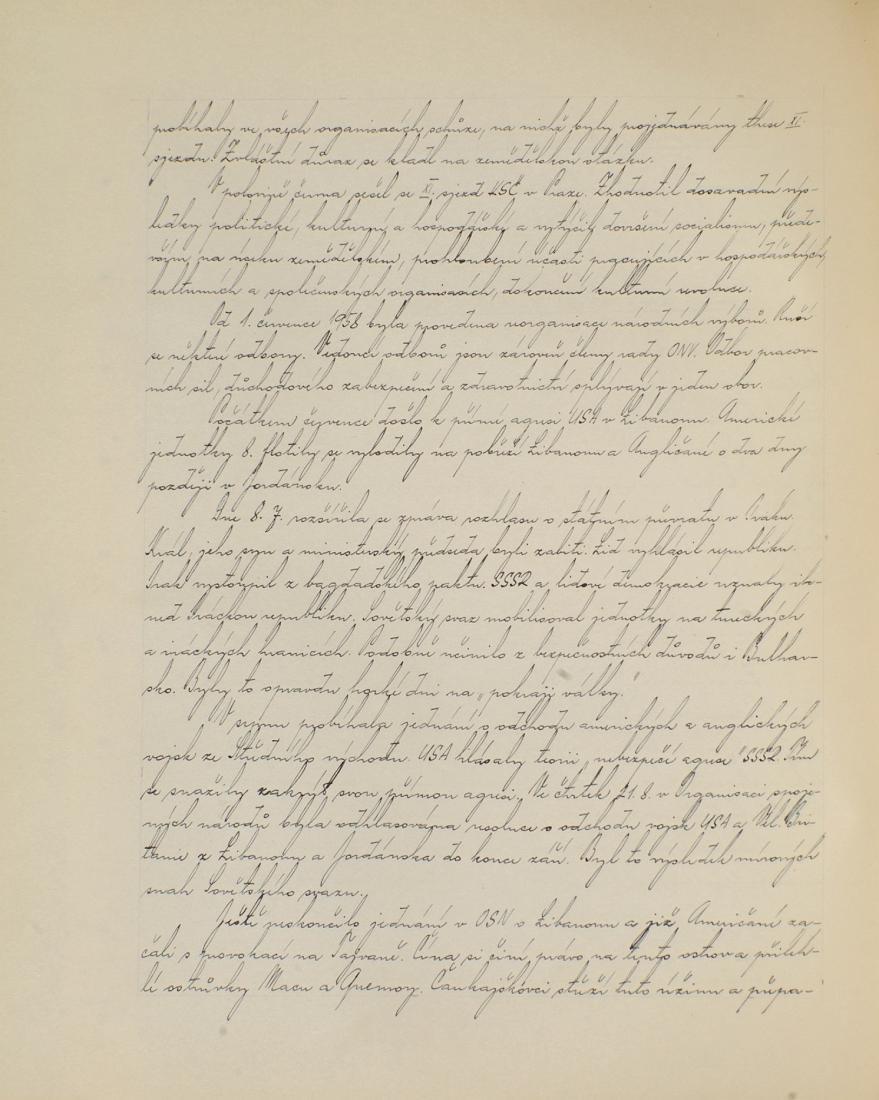 probíhaly ve všech organisacích schůze, na nichž byly projednávány these XI.
sjezdu. Zvláštní důraz se kladl na zemědělskou otázku.
V polovině června sešel se XI. sjezd KSČ v Praze. Zhodnotil dosavadní výs-
ledky politické, kulturní a hospodářské a vytýčil dovršení socialismu, přede-
vším na úseku zemědělském, prohloubení účasti pracujících v hospodářských,
kulturních a společenských organisacích, dokončení kulturní revoluce.
Od 1. července 1958 byla provedena reorganisace národních výborů. Ruší
se některé odbory. Vedoucí odborů jsou zároveň členy rady ONV. Odbor pracov-
ních sil, důchodového zabezpečení a zdravotnictví splývají v jeden obor.
Počátkem července došlo k přímé agresi USA v Libanonu. Americké
jednotky 8. flotily se vylodily na pobřeží Libanonu a Angličané o dva dny
později v Jordánsku.
Dne 8. 7. rozšířila se zpráva rozhlasu o státním převratu v Iráku.
Král, jeho syn a ministerský předseda byli zabiti. Lid vyhlásil republiku.
Irák vystoupil z bagdadského paktu. SSSR a lidové demokracie uznaly ih-
ned Iráckou republiku. Sovětský svaz mobilisoval jednotky na tureckých
a iráckých hranicích. Podobně učinilo z bezpečnostních důvodů i Bulhar-
sko. Byly to opravdu horké dni na „pokraji války."
V srpnu probíhala jednání o odchodu amerických a anglických
vojsk ze Středního východu. USA hlásaly teorii „nebezpečí agrese" SSSR. Tím
se snažily zakrýt svou přímou agresi. Ve čtvrtek 21. 8. v Organisaci spoje-
ných národů byla odhlasována resoluce o odchodu vojsk USA a Vel. Bri-
tanie z Libanonu a Jordánska do konce září. Byl to výsledek mírových
snah Sovětského svazu.
Ještě neskončilo jednání v OSN o Libanonu a již Američané za-
čali s provokací na Tajvaně. Čína si činí právo na tento ostrov a přileh-
lé ostrůvky Macu a Quemoy. Čankajškovci střeží tuto úžinu a přepa-